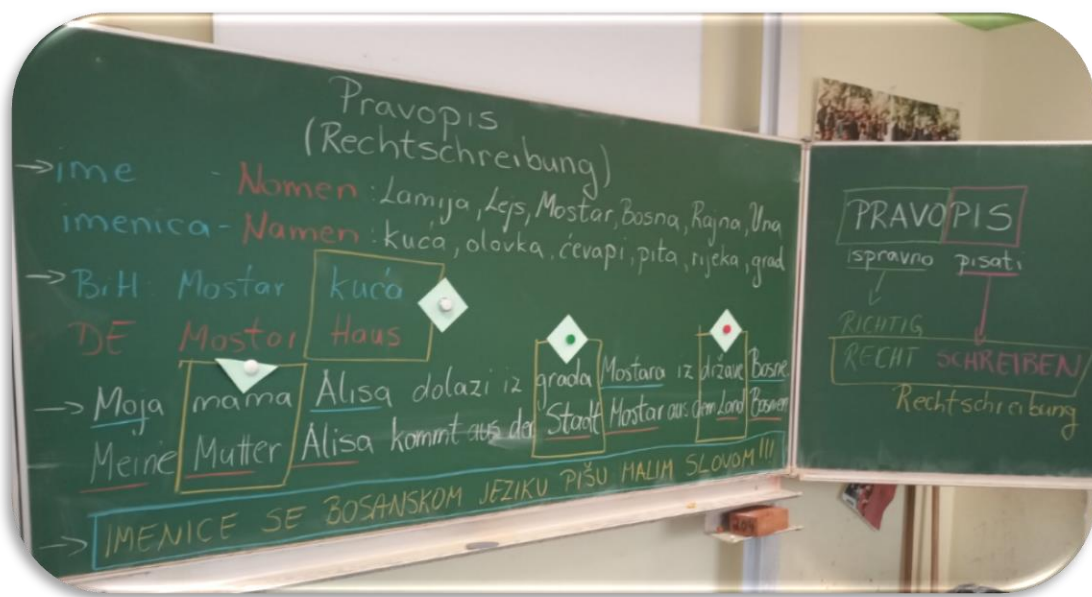 Pravopis
(Rechtschreibung)
→ime - Nomen: Lamija, Lejs, Mostar, Bosna, Rajna, Una
imenica - Namen: kuća, olovka, ćevapi, pita, rijeka, grad
→BiH Mostar kuća
DE Mostar Haus
→ Moja mama Alisa dolazi iz grada Mostara iz države Bosne
Meine Mutter Alisa kommt aus der Stadt Mostar aus dem Land Bosnien
→ IMENICE SE BOSANSKOM JEZIKU PIŠU MALIM SLOVOM!!!
PRAVOPIS
ispravno pisati
RICHTIG
RECHT SCHREIBEN
Rechtschreibung